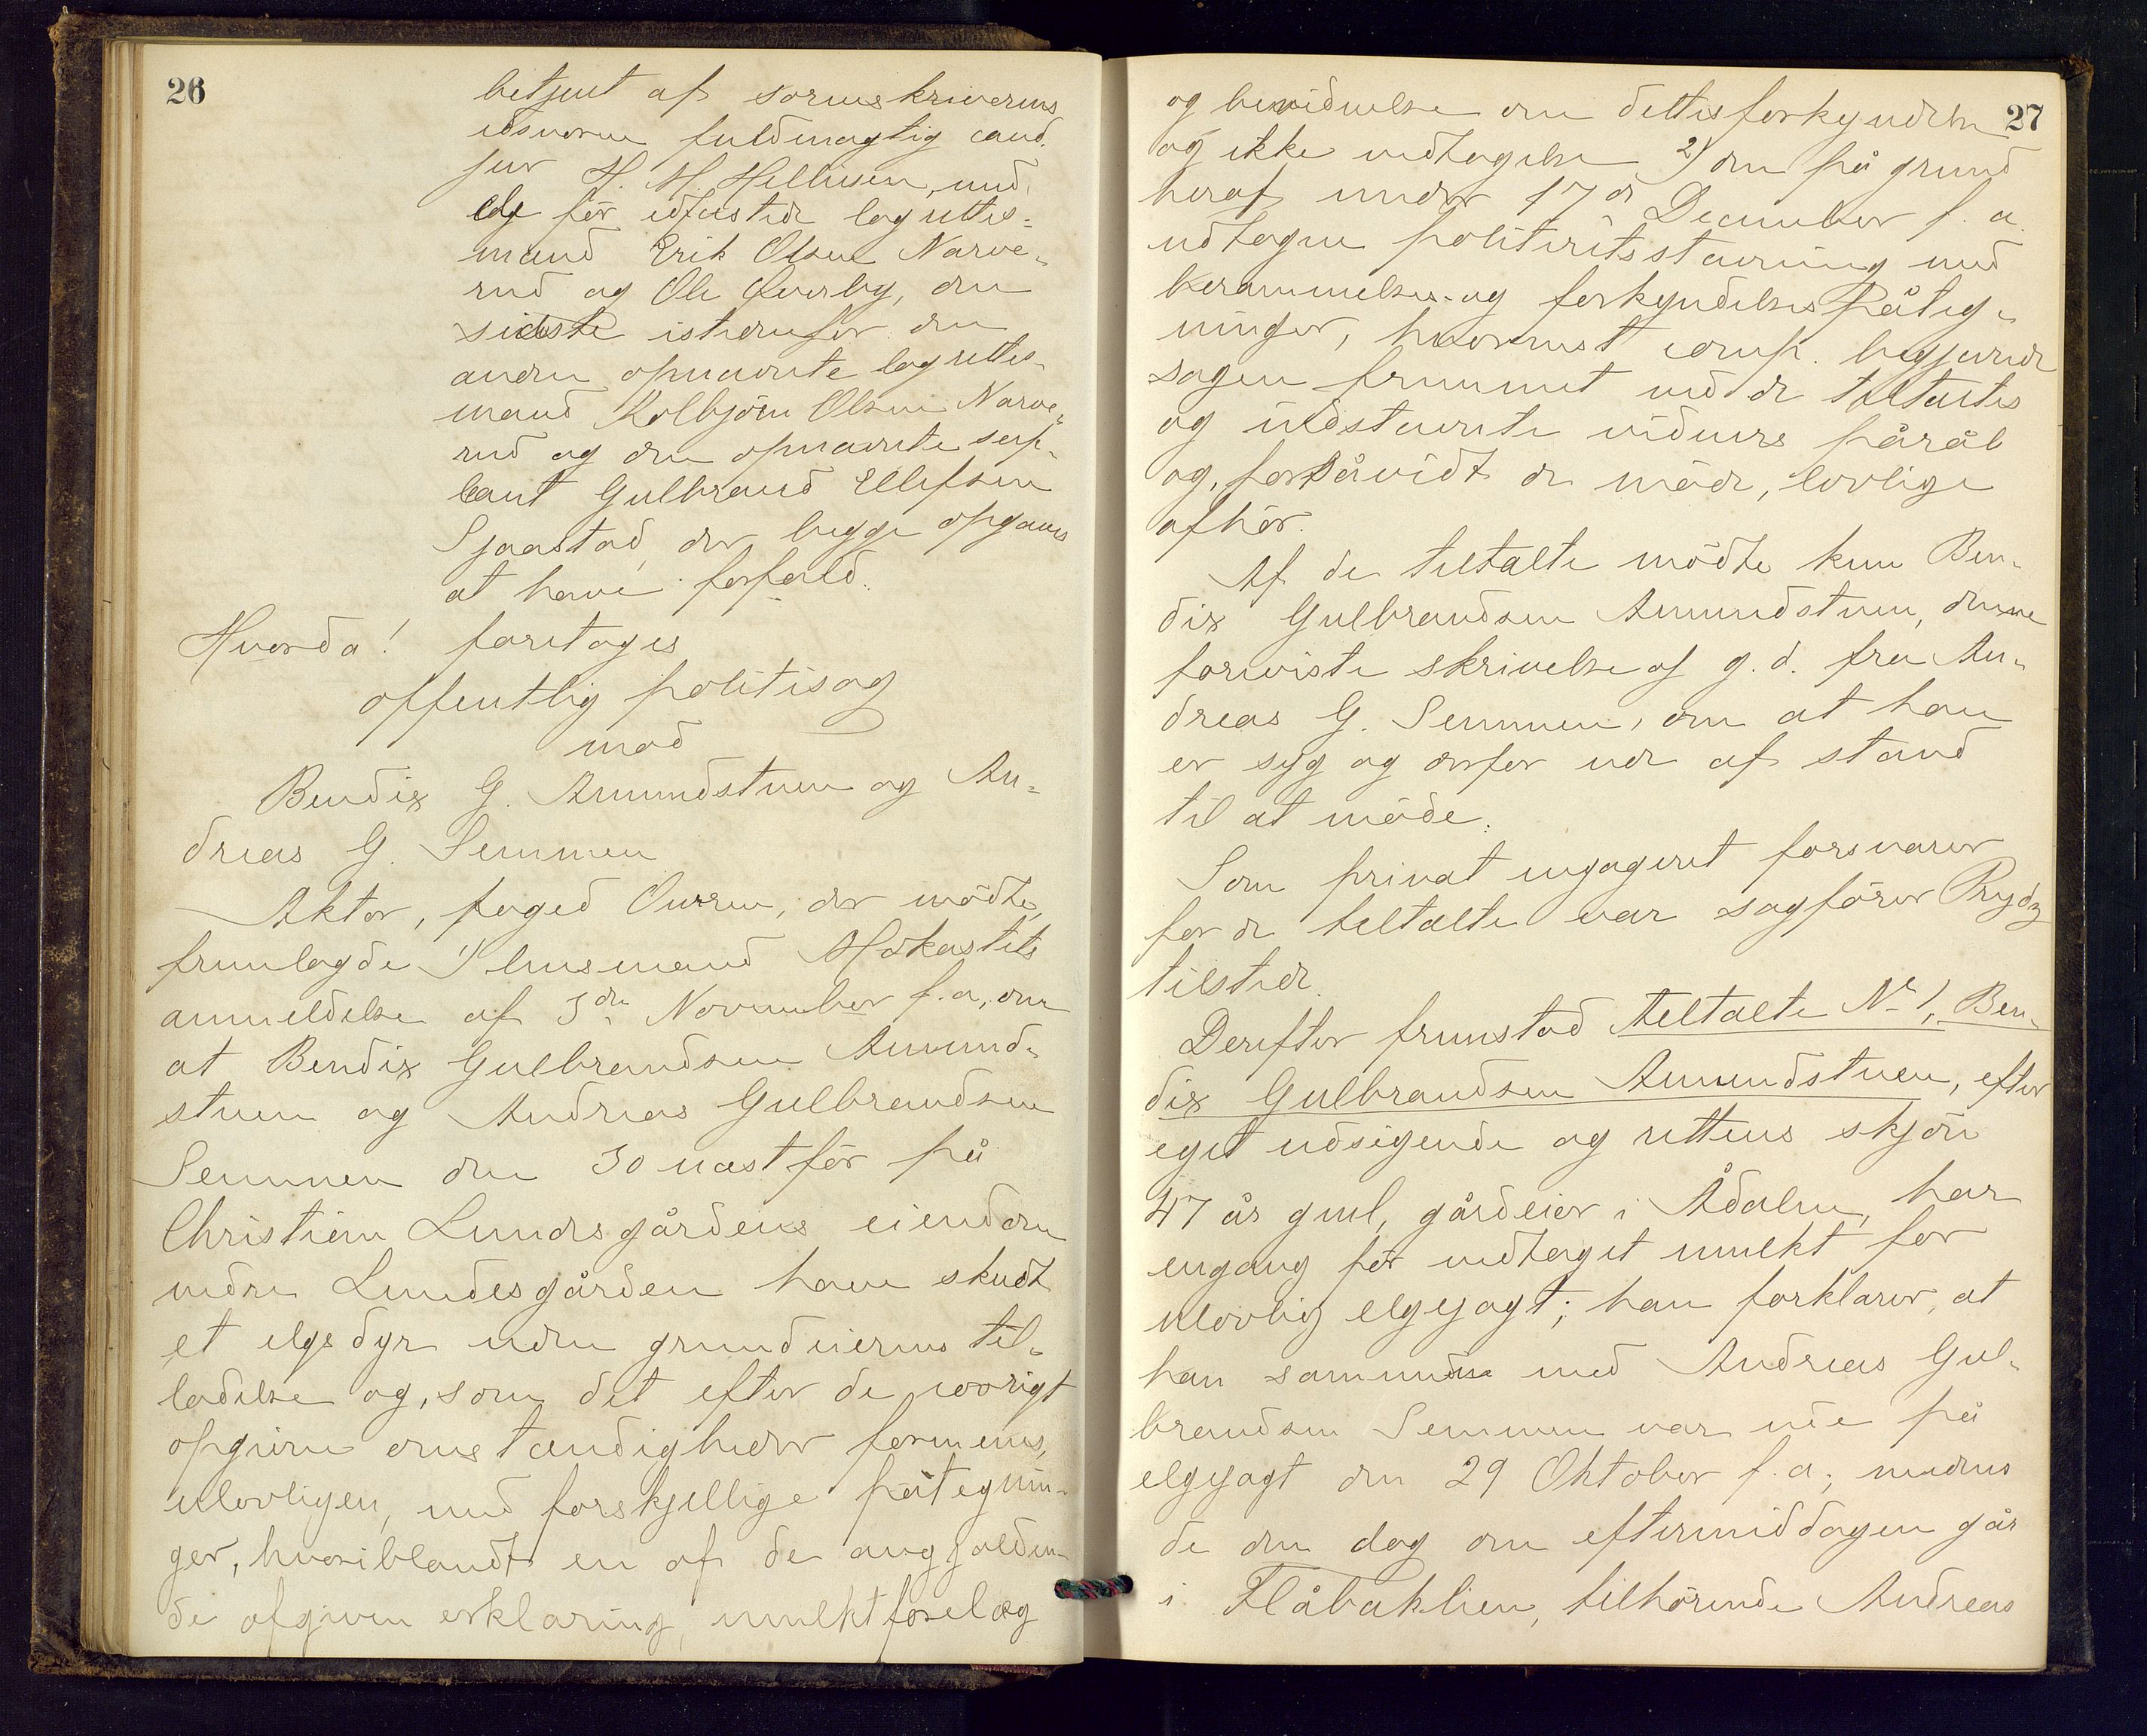 26
betjent af sorenskriverens
edsvorne fuldmægtig cand.
jur H. M. Hellusen, med
de før edfæstede lagrettes-
mænd Erik Olsen Narve-
rud og Ole Qverby, den
sidste istedenfor den
anden opnævnte lagrettes-
mand Kolbjörn Olsen Narve-
rud og den opnævnte sup-
leant Gulbrand Ellefsen
Sjaastad, der begge opgaves
at have forfald.
Hvorda! foretoges
offentlig politisag
mod
Bendix G. Amundstuen og An-
dreas G. Semmen
Aktor, foged Ourren, der mödte,
fremlagde 1) lensmand
anmeldelse af 3die November f.a., om
at Bendix Gulbrandsen Amund-
stuen og Andreas Gulbrandsen
Semmen den 30 næstför på
Christian Lundesgårdens eiendom
nedre Lundesgården have skudt
et elgsdyr uden grundeierens til-
ladelse og, som det efter de iövrigt
opgivne omstændigheder formenes,
ulovligen, med forskjellige påtegnin-
ger, hvoriblandt en af de angjælden-
de afgiven erklæring, mulktforelæg
27
og bevidnelse om dettes forkyndelse
og ikke vedtagelse 2) den på grund
heraf under 17de December f. a.
udtagne politiretsstævning med
berammelses- og forkyndelses påteg-
ninger, hvornæst comp. begjærede
sagen fremmet ved de tiltaltes
og indstævnte vidners påråb
og, forsåvidt de möde, lovlige
afhör.
Af de tiltalte mödte kun Ben-
dix Gulbrandsen Amundstuen, denne
foreviste skrivelse af g. d. fra An-
dreas G. Semmen, om at han
er syg og derfor ude af stand
til at möde.
Som privat engageret forsvarer
for de tiltalte var sagförer Prydz
tilstede.
Derefter fremstod tiltalte No 1, Ben-
dix Gulbrandsen Amundstuen, efter
eget udsigende og rettens skjön
47 år gml, gårdeier i Ådalen, har
engang för vedtaget mulkt for
ulovlig elgejagt; han forklarer, at
han sammen med Andreas Gul-
brandsen Semmen var ude på
elgejagt den 29 Oktober f. a.; medens
de den dag om eftermiddagen går
i Flåbæklien, tilhörende Andreas